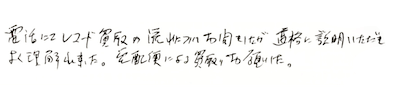 電話にてレコード買取の流れについてお聞きしたが 適格に説明いただき
よく理解出来た。宅配便による買取りお願いした。